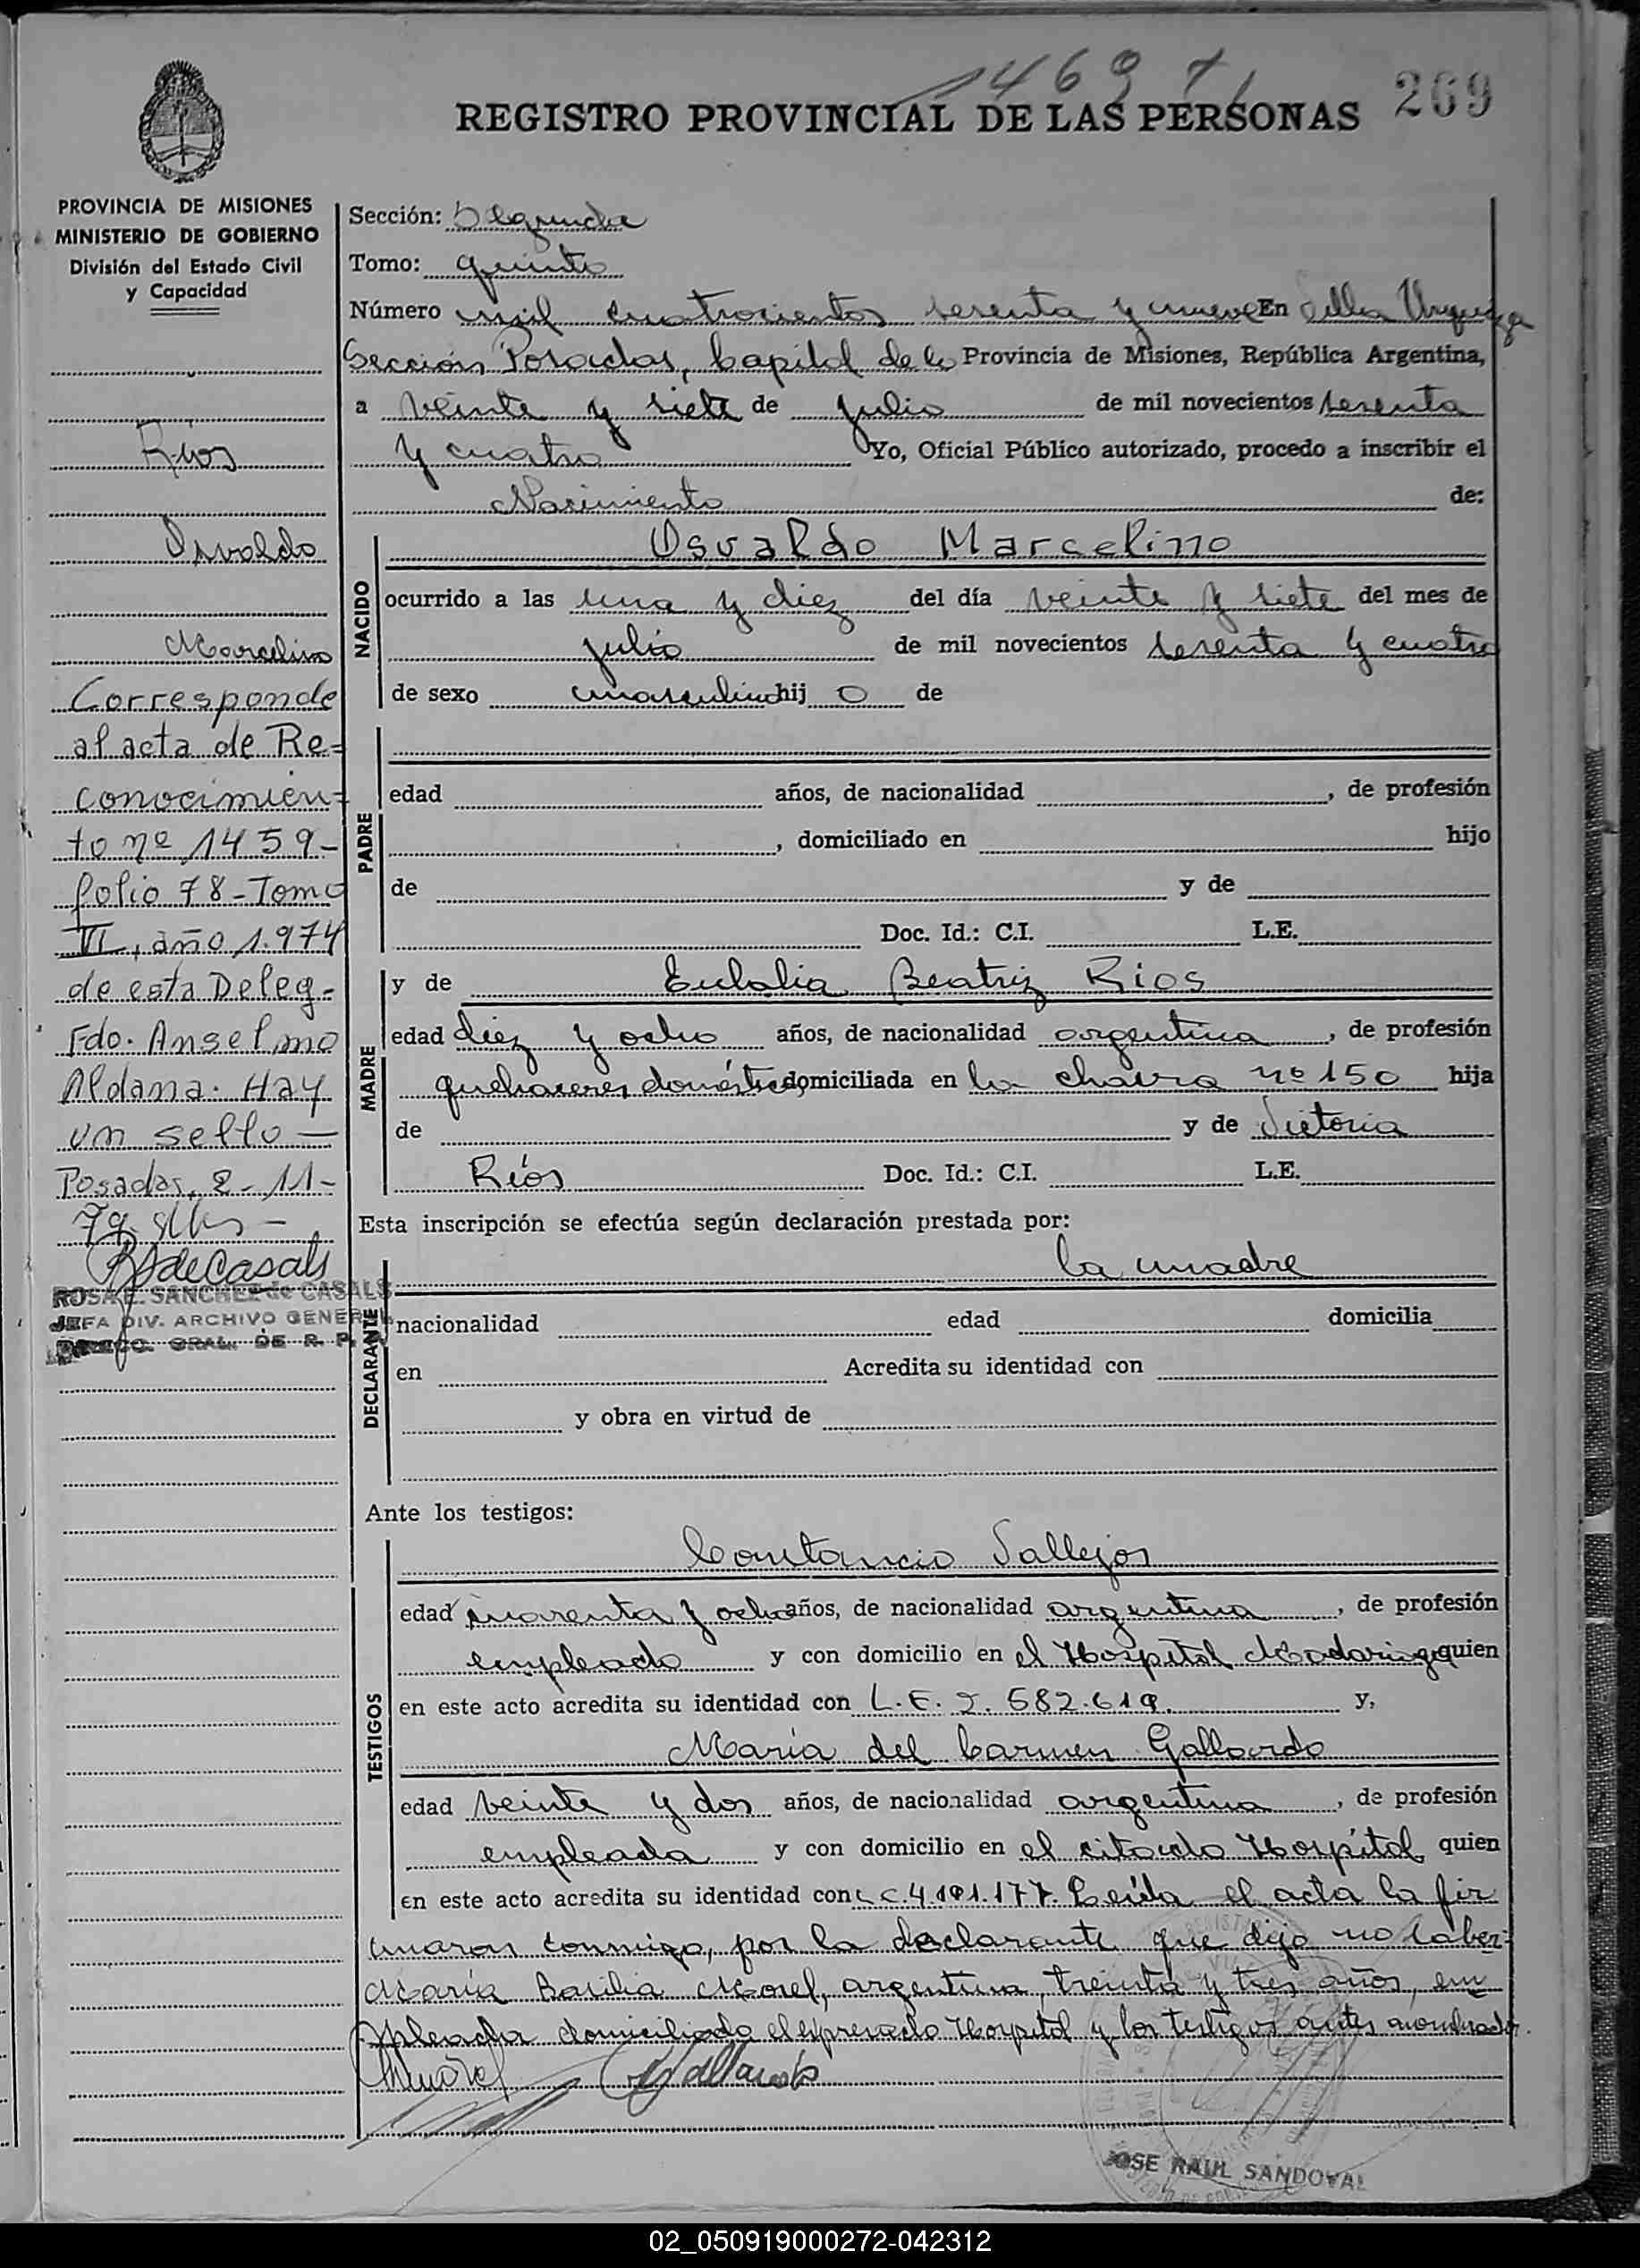 1469
269
REGISTRO PROVINCIAL DE LAS PERSONAS
PROVINCIA DE MISIONES
MINISTERIO DE GOBIERNO
División del Estado Civil
y Capacidad
Rios
Osvaldo
Marcelino
Corresponde
al acta de Re=
conocimien=
to nº 1459-
folio 78-Tomo
VI, año 1.974
de esta Deleg-
Fdo. Anselmo
Aldana. Hay
un sello —
Posadas, 2-11-
79
RSdeCasals
ROSA E. SANCHEZ de CASALS
JEFA DIV. ARCHIVO GENERAL
DIRECC. GRAL. DE R. P.
Sección: Segunda
Tomo: quinto
Número mil cuatrocientos sesenta y nueve En Villa Urquiza
Sección Posadas, Capital de la Provincia de Misiones, República Argentina,
a veinte y siete de julio de mil novecientos sesenta
y cuatro Yo, Oficial Público autorizado, procedo a inscribir el
Nacimiento de:
NACIDO
Osvaldo Marcelino
ocurrido a las una y diez del día veinte y siete del mes de
julio de mil novecientos sesenta y cuatro
de sexo masculino hijo de
PADRE
edad años, de nacionalidad , de profesión
, domiciliado en hijo
de y de
Doc. Id.: C.I. L.E.
MADRE
y de Eulalia Beatriz Rios
edad diez y ocho años, de nacionalidad argentina , de profesión
quehaceres domésticos, domiciliada en la chacra nº 150 hija
de y de Victoria
Ríos Doc. Id.: C.I. L.E.
Esta inscripción se efectúa según declaración prestada por:
DECLARANTE
la madre
nacionalidad edad domicilia
en Acredita su identidad con
y obra en virtud de
Ante los testigos:
TESTIGOS
Constancio Vallejos
edad cuarenta y ocho años, de nacionalidad argentina , de profesión
empleado y con domicilio en el Hospital Madariaga quien
en este acto acredita su identidad con L.E. 2.582.619. y,
María del Carmen Gallardo
edad veinte y dos años, de nacionalidad argentina , de profesión
empleada y con domicilio en el citado Hospital quien
en este acto acredita su identidad con L C.4.191.177. Leída el acta la fir
maron conmigo, por la declarante que dijo no saber=
María Basilia Morel, argentina, treinta y tres años, em
pleada domiciliada el expresado Hospital y los testigos antes nombrados.
JOSE RAUL SANDOVAL
02_050919000272-042312